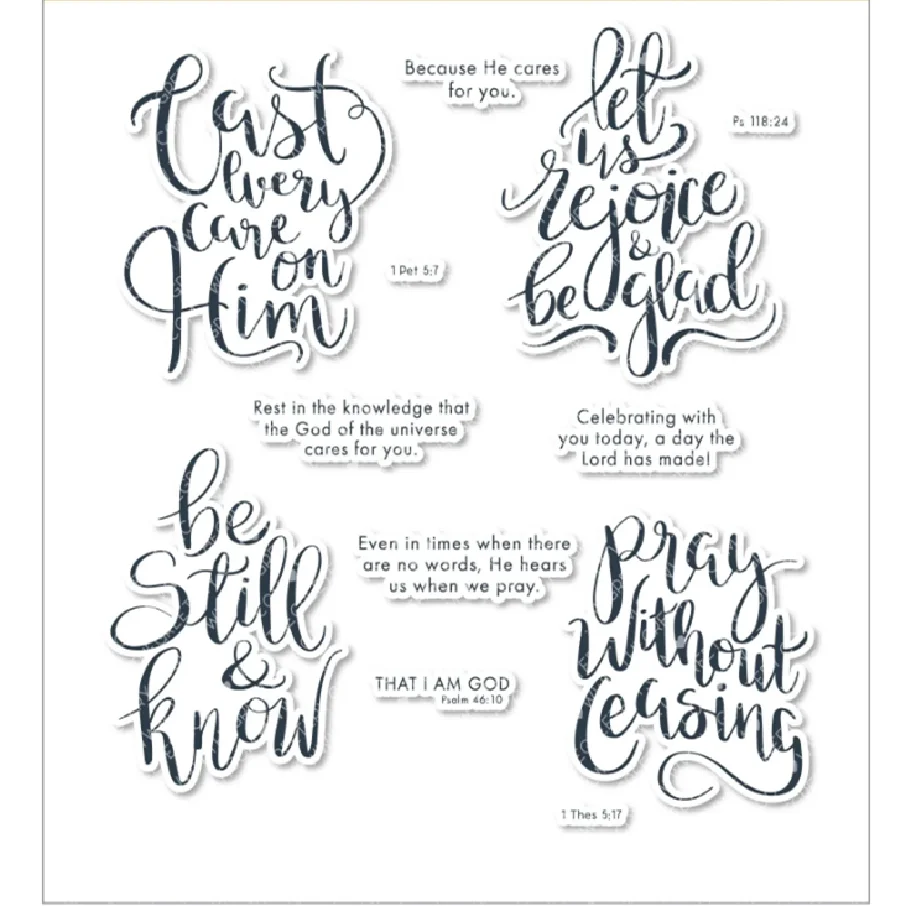 Cast
every
care
on
Him
Because He cares
for you.
let
us
rejoice
&
be glad
Ps 118:24
1 Pet 5:7
Rest in the knowledge that
the God of the universe
cares for you.
Celebrating with
you today, a day the
Lord has made!
be
Still
&
know
Even in times when there
are no words, He hears
us when we pray.
THAT I AM GOD
Psalm 46:10
pray
Without
Ceasing
1 Thes 5:17